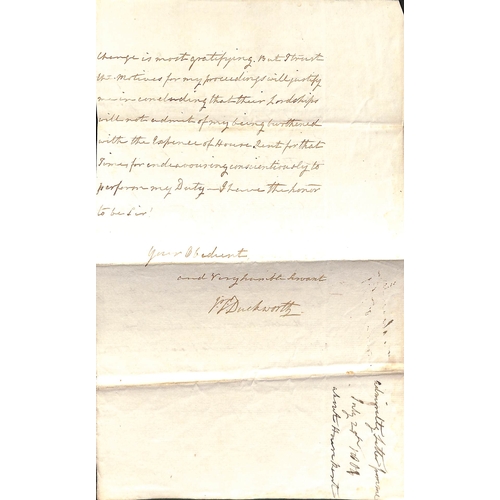 Change is most gratifying. But I trust
the Motives for my proceedings will justify
me in concluding that their Lordships
will not admit of my being burthened
with the Expence of House Rent for that
Time, for endeavouring conscientiously to
perform my Duty — I have the honor
to be Sir!
Your Obedient
and Very humble Servant
JT Duckworth
Admiralty letter
July 2
about House Rent